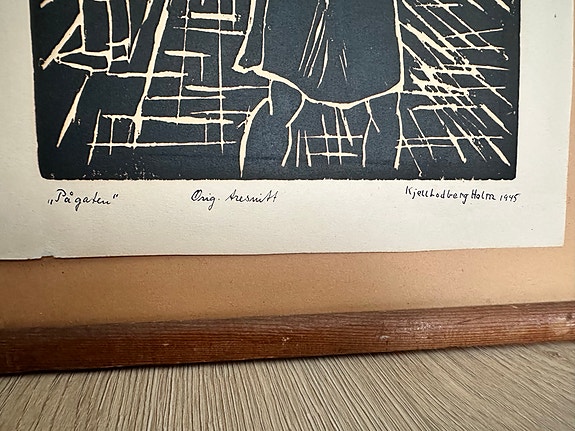 „På gaten" Orig. tresnitt Kjell Lodberg Holm 1945